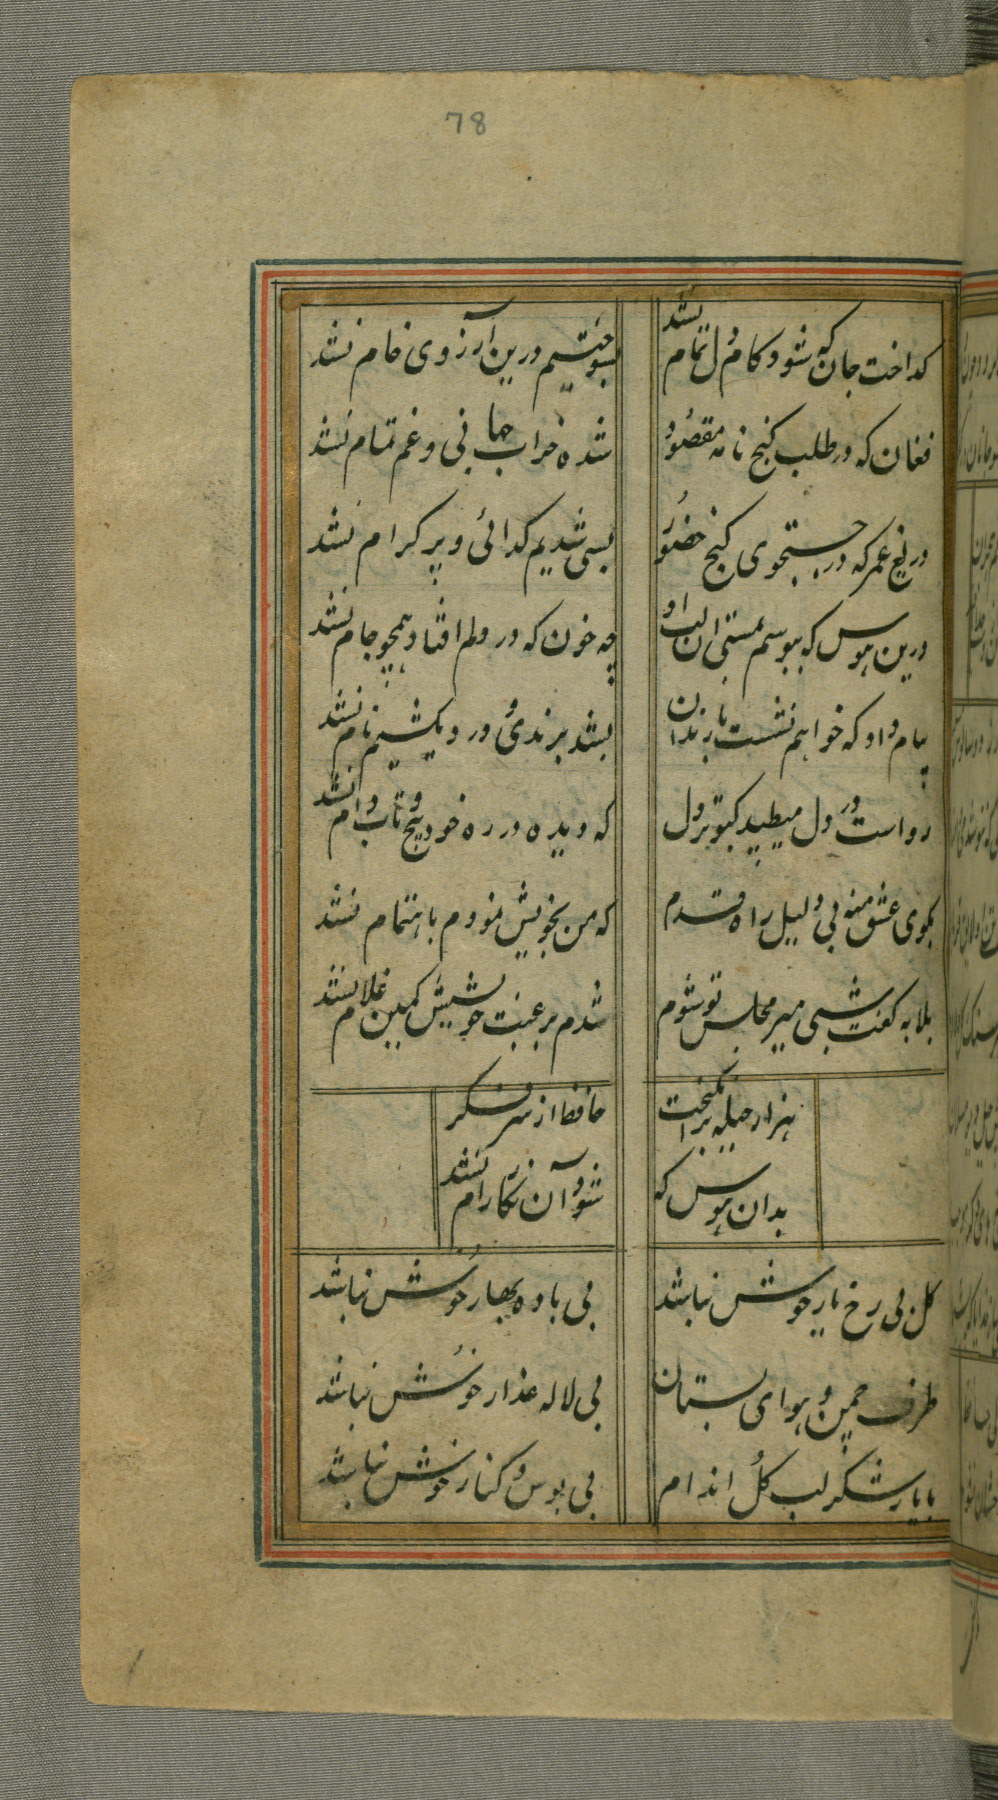 78
کداخت جان که شود کام دل تمام نشد
بسوختیم درین آرزوی خام نشد
فغان که در طلب کنج نامه مقصود
شده خراب جهانی و غم تمام نشد
دریغ عمر که در جستجوی کنج حضور
بسی شدیم کدائی و بر کرام نشد
درین هوس که ببوسم بمستی ان لب او
چه خون که در دلم افتاد همچو جام نشد
پیام داد که خواهم نشست با رندان
بشد برندی و دردیکشیم نام نشد
رواست در دل میطپد کبوتر دل
که دیده در ره خود پیچ و تاب دام نشد
بکوی عشق منه بی دلیل راه قدم
که من بخویش نمودم باهتمام نشد
بلابه کفت شبی میر مجلس تو شوم
شدم برغبت خویشیش کمین غلام نشد
هزار حیله برانکیخت
حافظ از سر فکر
بدان هوس که
شود آن نکار رام نشد
کل بی رخ یار خوش نباشد
بی باده بهار خوش نباشد
طرف چمن و هوای بستان
بی لاله عذار خوش نباشد
با یار شکر لب کل اندام
بی بوس و کنار خوش نباشد